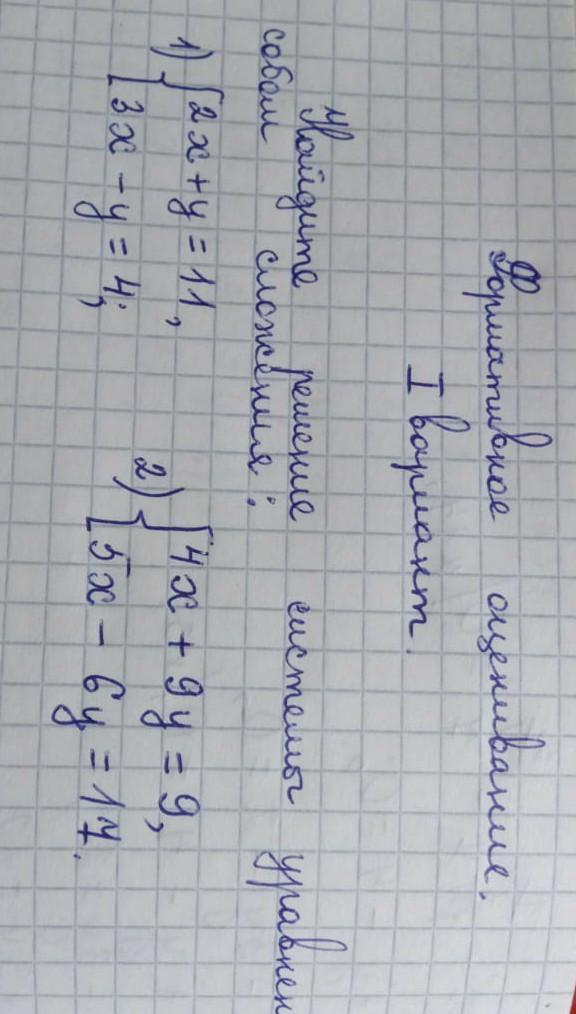 Формативное оценивание.
I вариант.
Найдите решение системы уравнен
собом сложения:
1) { 2x + y = 11,
3x - y = 4;
2) { 4x + 9y = 9,
5x - 6y = 17.